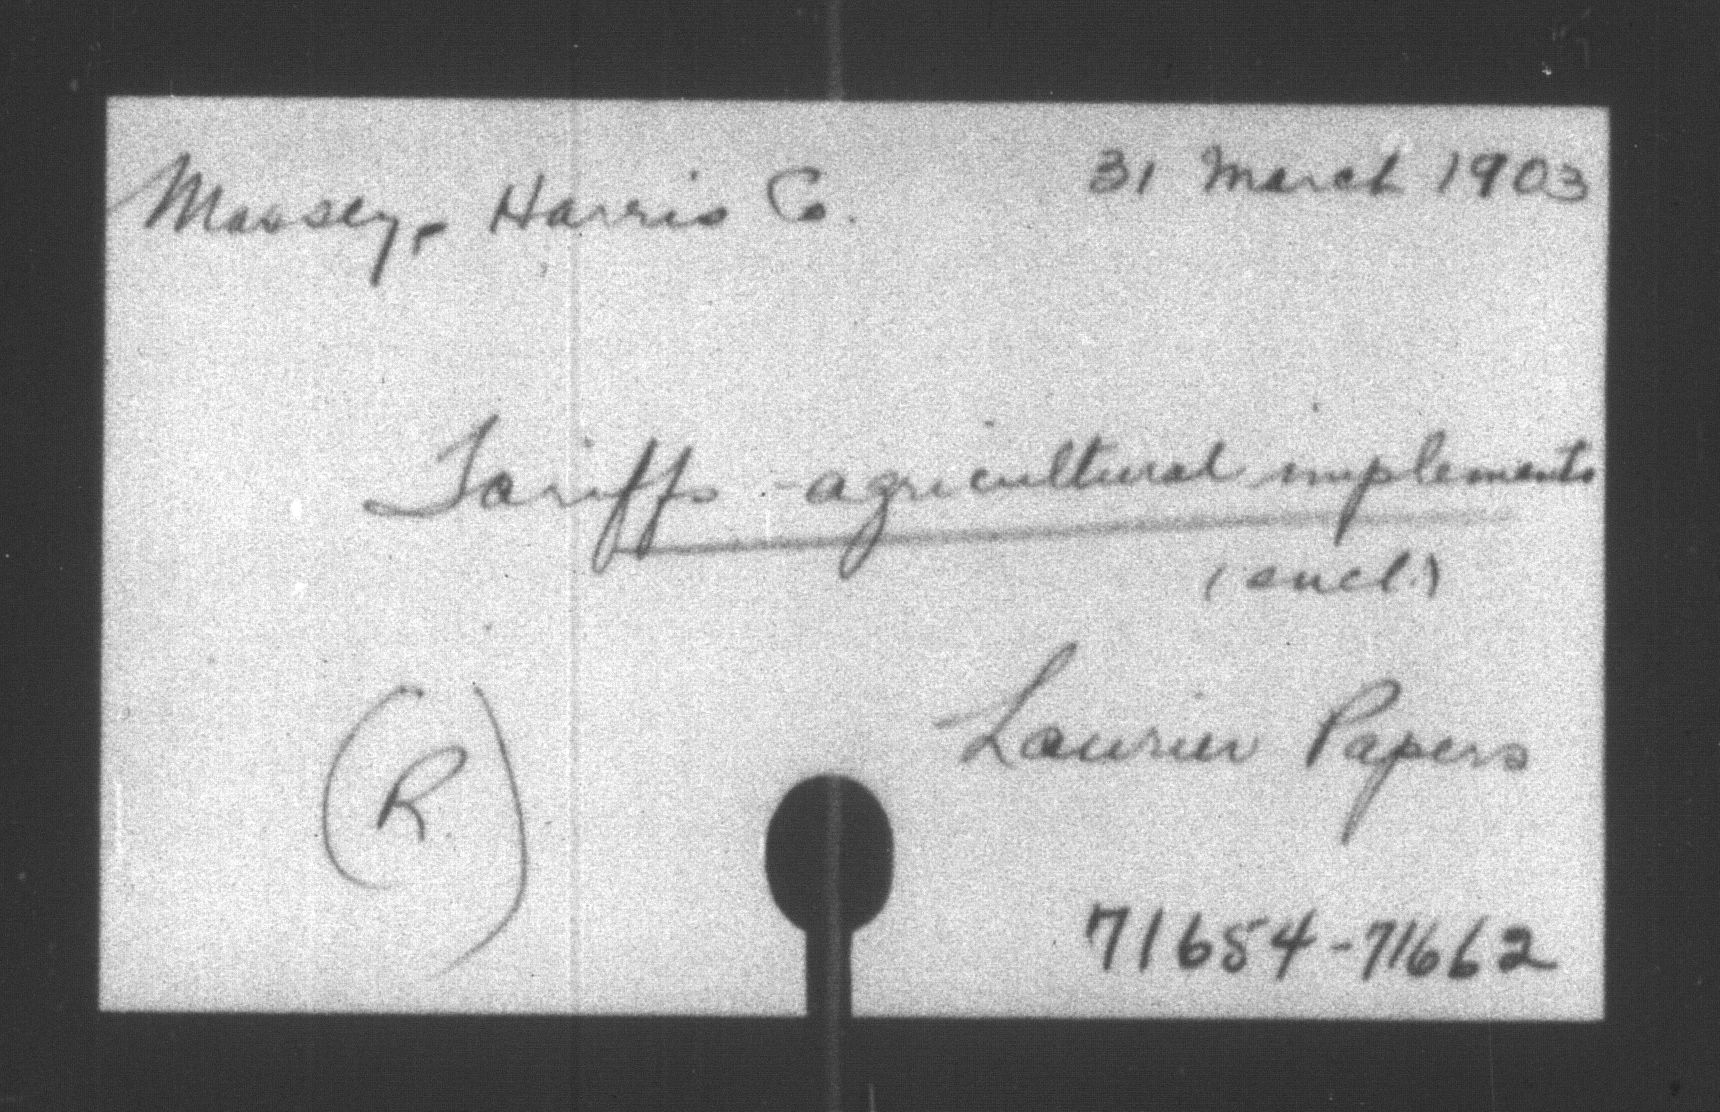 Massey, Harris Co.
31 March 1903
Tariffs - agricultural implements
(encl.)
Laurier Papers
(R)
71654-71662